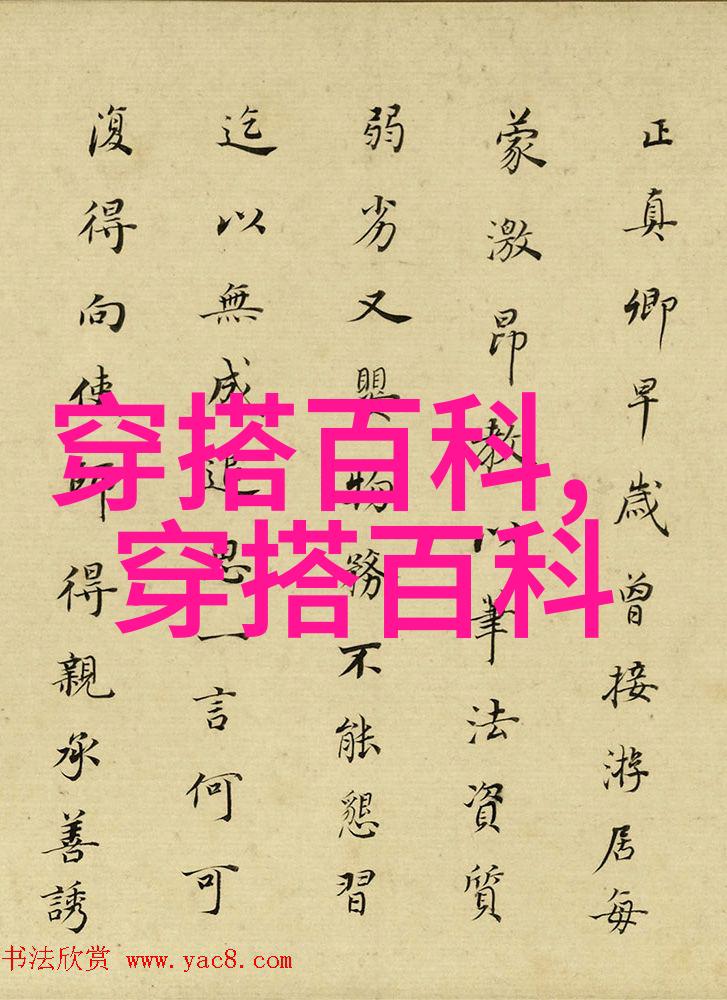 正真卿早歲曾接游居每
蒙激昂教以筆法資質
弱劣又嬰物務不能懇習
迄以無成追思一言何可
復得向使師得親承善誘
穿搭百科,
穿搭百科
书法欣赏 www.yac8.com